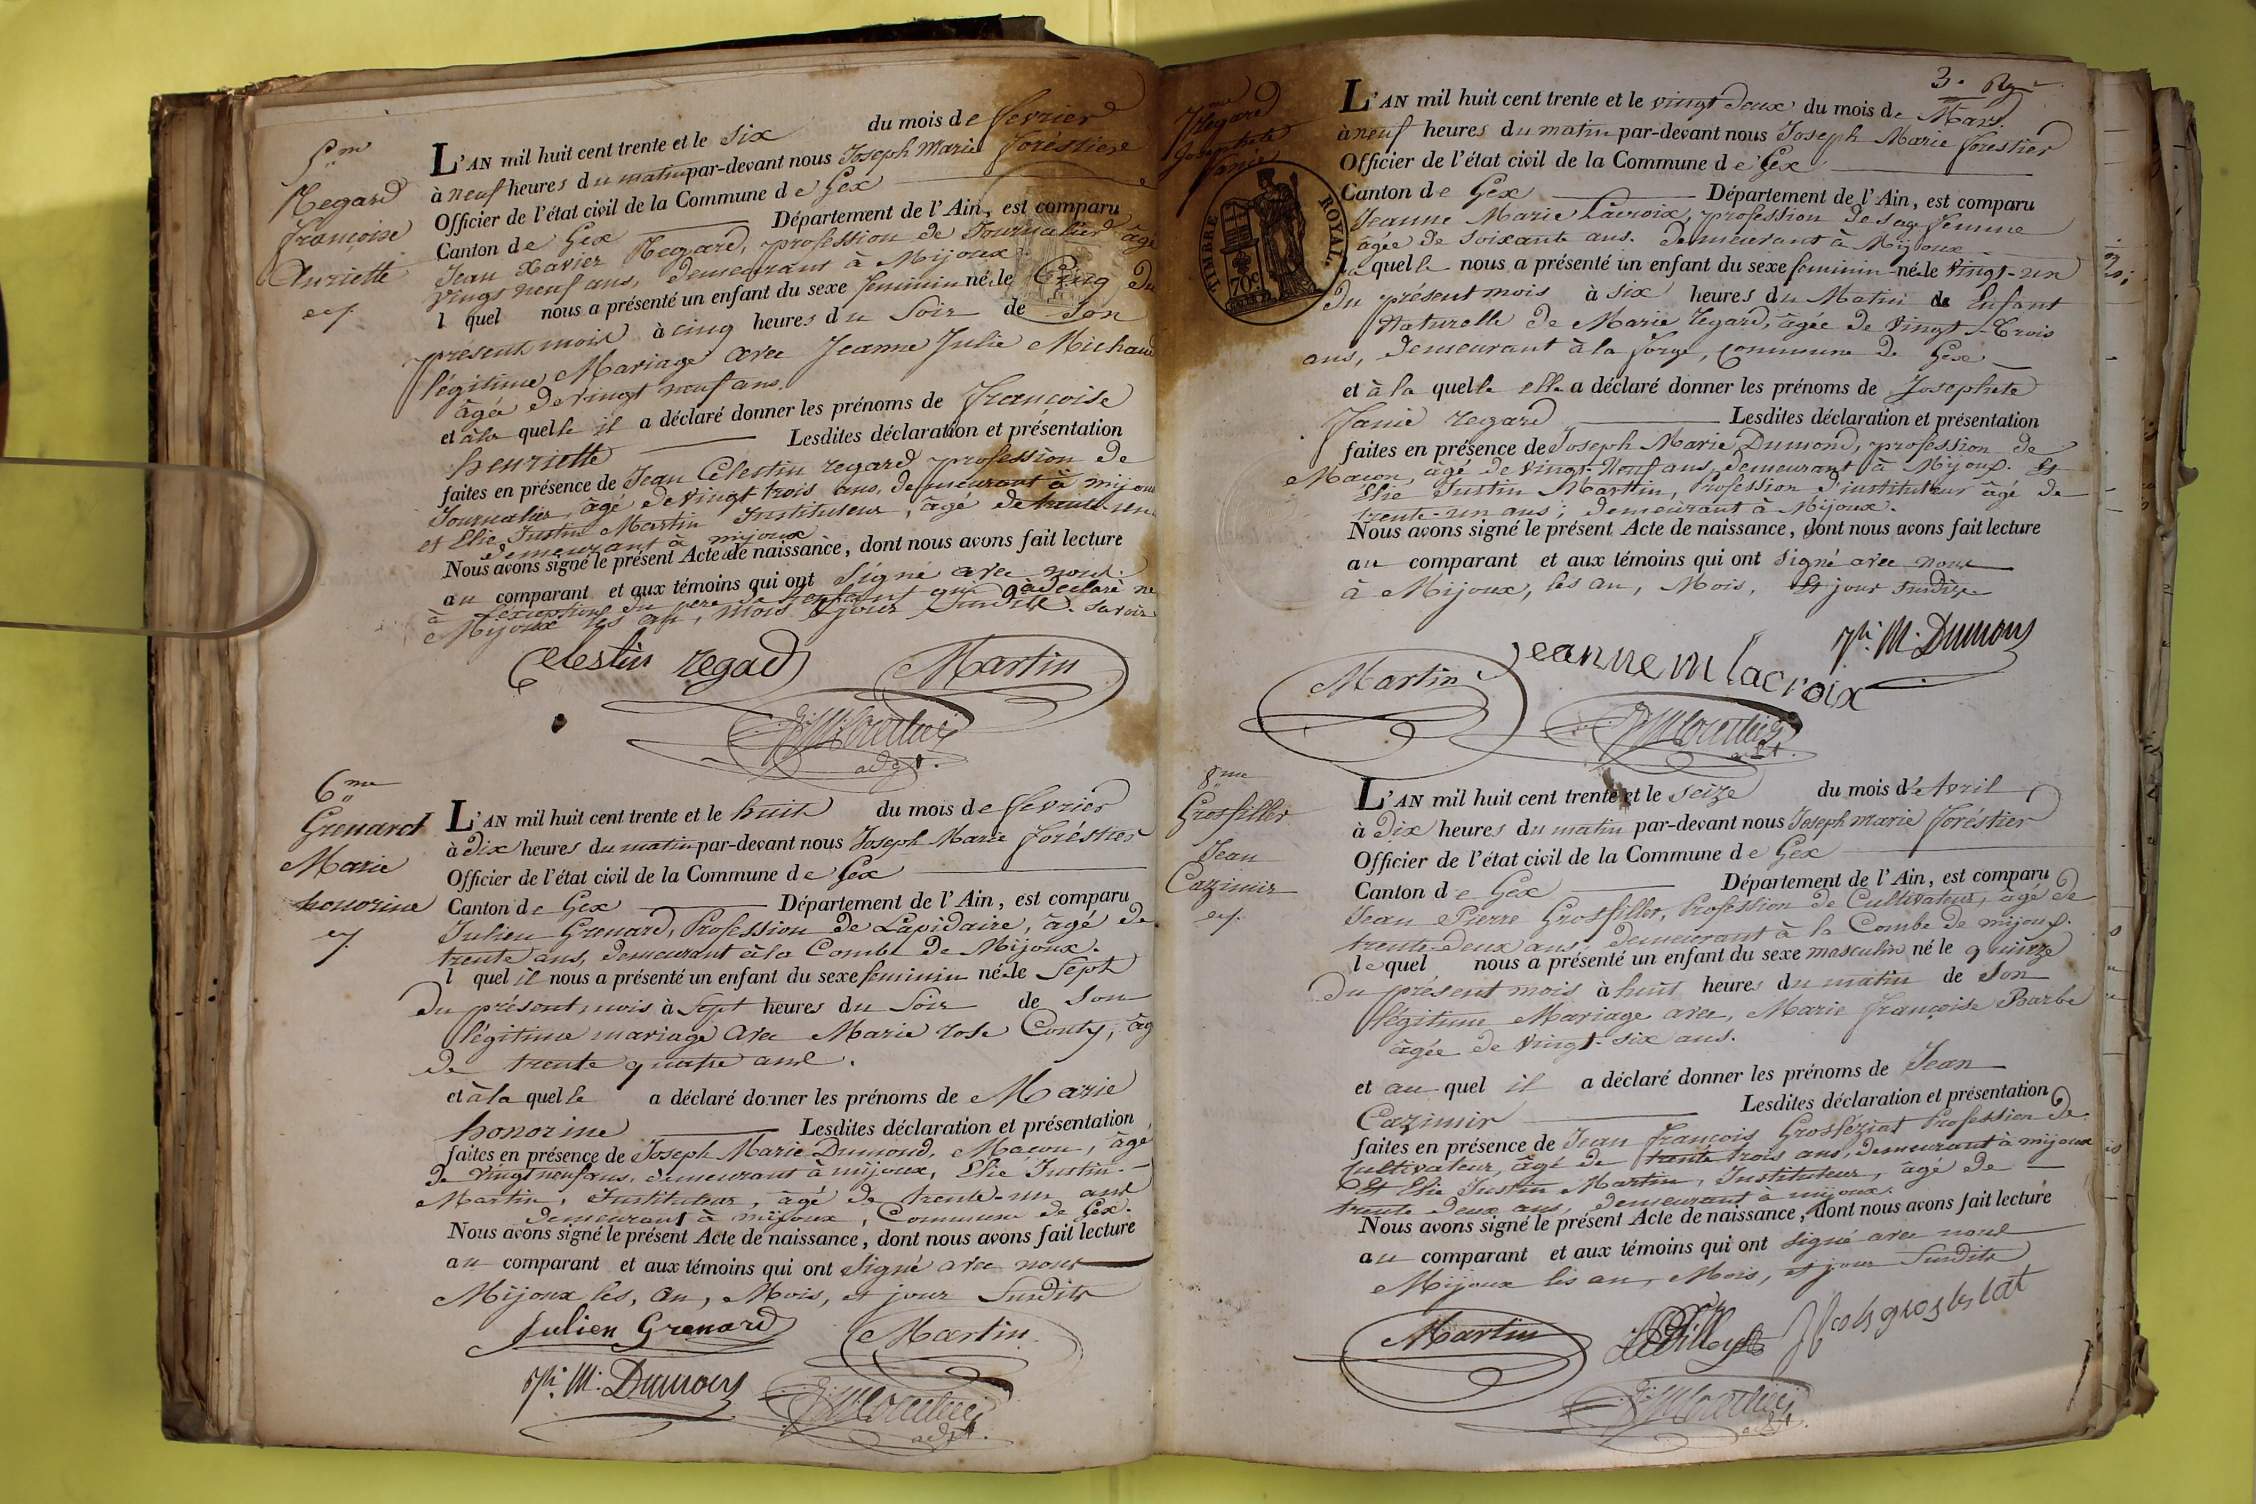 5.me
Regard
Françoise
Anriette
L'AN mil huit cent trente et le six du mois de fevrier
à neuf heures du matin par-devant nous Joseph Marie Foréstier
Officier de l'état civil de la Commune de Gex
Canton de Gex Département de l'Ain, est comparu
Jean Xavier Regard, profession de Journalier âgé
vingt neuf ans, demeurant à Mijoux
l quel nous a présenté un enfant du sexe feminin né le Cinq du
présent mois à cinq heures du Soir de Son
légitime Mariage avec Jeanne Julie Michaud
âgée de vingt neuf ans.
et à la quelle il a déclaré donner les prénoms de Françoise
henriette Lesdites déclaration et présentation
faites en présence de Jean Célestin regard profession de
Journalier, âgé de vingt trois ans, demeurant à mijoux
et Elie Justin Martin Instituteur, âgé de trente-un
demeurant à mijoux
Nous avons signé le présent Acte de naissance, dont nous avons fait lecture
au comparant et aux témoins qui ont Signé avec nous.
à l'éxception du pere de l'enfant qui a déclaré ne
Mijoux les an, mois & jour Susdits. Savoir
Celestin regad Martin
adjt.
6.me
Grenard
Marie
honorine
L'AN mil huit cent trente et le huit du mois de fevrier
à Dix heures du matin par-devant nous Joseph Marie Foréstier
Officier de l'état civil de la Commune de Gex
Canton de Gex Département de l'Ain, est comparu
Julien Grenard, Profession de Lapidaire, âgé de
trente ans, demeurant à la Combe de Mijoux.
l quel il nous a présenté un enfant du sexe feminin né le Sept
du présent mois à Sept heures du Soir de Son
légitime mariage avec Marie rose Conty, âg
de trente quatre ans.
et à la quelle a déclaré donner les prénoms de Marie
honorine Lesdites déclaration et présentation
faites en présence de Joseph Marie Dumond, Macon, âgé
de vingt neuf ans, demeurant à mijoux, Elie Justin
Martin, Instituteur, âgé de trente-un ans
demeurant à mijoux, Commune de Gex.
Nous avons signé le présent Acte de naissance, dont nous avons fait lecture
au comparant et aux témoins qui ont Signé avec nous
Mijoux les, an, Mois, et jour Susdits
Julien Grenard Martin
Jh. M. Dumond
adjt.
3.
7.me
Regard
Josephete
Fanie
TIMBRE ROYAL
70c
L'AN mil huit cent trente et le vingt deux du mois de Mars
à neuf heures du matin par-devant nous Joseph Marie Forestier
Officier de l'état civil de la Commune de Gex
Canton de Gex Département de l'Ain, est comparu
Jeanne Marie Lacroix, profession de sage femme
âgée de soixante ans. demeurant à Mijoux
la quelle nous a présenté un enfant du sexe feminin né le Vingt-un
du présent mois à six heures du Matin de Enfant
Naturelle de Marie regard, âgée de vingt-Trois
ans, demeurant à la forge, commune de Gex
et à la quelle elle a déclaré donner les prénoms de Josephete
Fanie regard Lesdites déclaration et présentation
faites en présence de Joseph Marie Dumond, profession de
Macon, âgé de vingt-neuf ans, demeurant à Mijoux. Et
Elie Justin Marttin, Profession d'instituteur âgé de
trente-un ans; demeurant à Mijoux.
Nous avons signé le présent Acte de naissance, dont nous avons fait lecture
au comparant et aux témoins qui ont Signé avec nous
à Mijoux, les an, Mois, Et jour Susdits
Martin jeanne m lacroix Jh. M. Dumond
adjt.
8.me
Grosfiller
Jean
Cazimir
L'AN mil huit cent trente et le seize du mois d'Avril
à Dix heures du matin par-devant nous Joseph marie Foréstier
Officier de l'état civil de la Commune de Gex
Canton de Gex Département de l'Ain, est comparu
Jean Pierre Grosfiller, Profession de Cultivateur, âgé de
trente-deux ans, demeurant à la Combe de mijoux.
le quel nous a présenté un enfant du sexe masculin né le quinze
du présent mois à huit heures du matin de Son
légitime Mariage avec, Marie françoise Barbe
âgée de Vingt-six ans.
et au quel il a déclaré donner les prénoms de Jean
Cazimir Lesdites déclaration et présentation
faites en présence de Jean François Grosféziat Profession de
Cultivateur, âgé de trente trois ans, demeurant à mijoux
Et Elie Justin Martin, Instituteur, âgé de
trente deux ans, demeurant à mijoux.
Nous avons signé le présent Acte de naissance, dont nous avons fait lecture
au comparant et aux témoins qui ont signé avec nous
Mijoux les an, Mois, et jour Susdits
Martin
adjt.